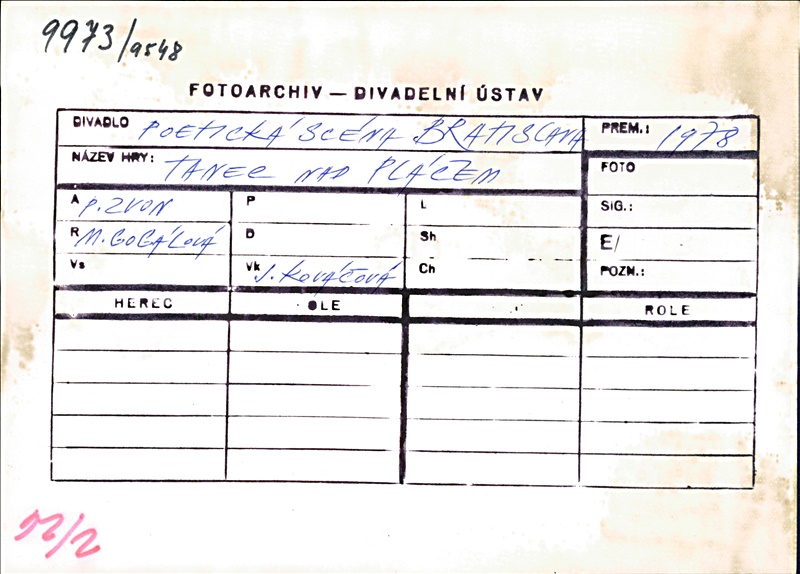 9973/9548
FOTOARCHIV — DIVADELNÍ ÚSTAV
DIVADLO POETICKÁ SCÉNA BRATISLAVA PREM.: 1978
NÁZEV HRY: TANEC NAD PLÁČEM FOTO
A P. ZVON P L SIG.:
R M. GOGÁLOVÁ D Sh E/
Vs Vk J. KOVÁČOVÁ Ch POZN.:
HEREC OLE ROLE
52/2